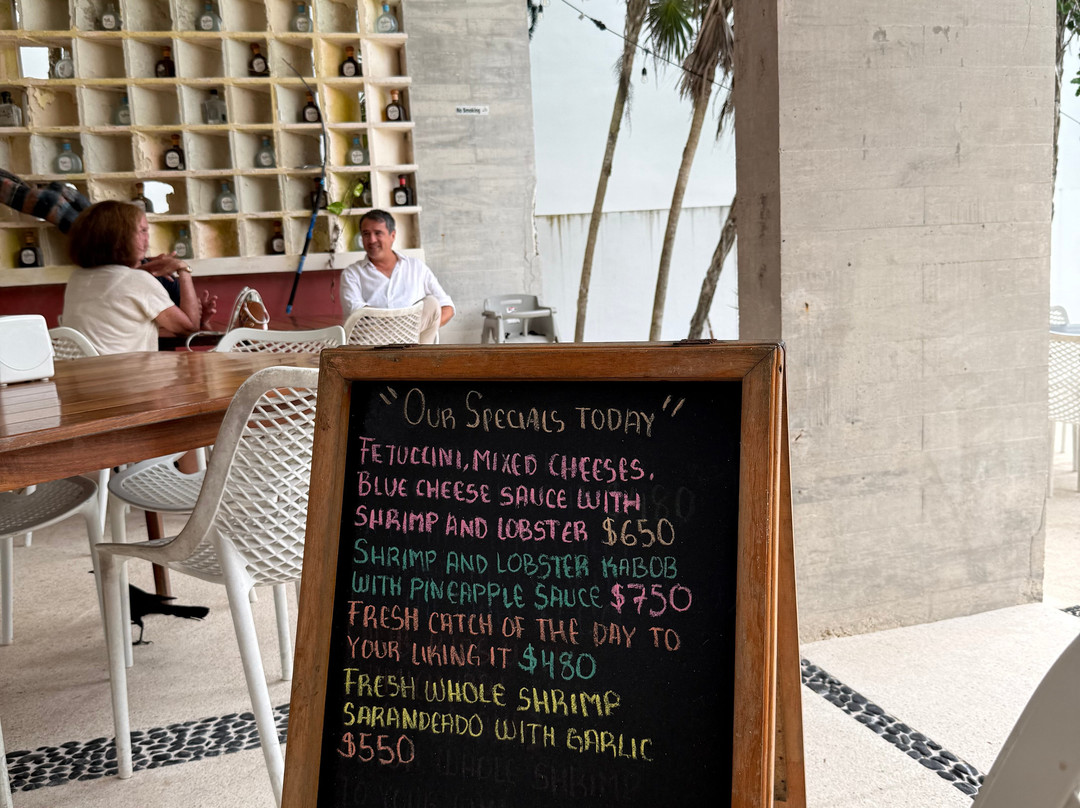 No Smoking
"OUR SPECIALS TODAY"
FETUCCINI, MIXED CHEESES.
BLUE CHEESE SAUCE WITH
SHRIMP AND LOBSTER $650
SHRIMP AND LOBSTER KABOB
WITH PINEAPPLE SAUCE $750
FRESH CATCH OF THE DAY TO
YOUR LIKING IT $480
FRESH WHOLE SHRIMP
SARANDEADO WITH GARLIC
$550